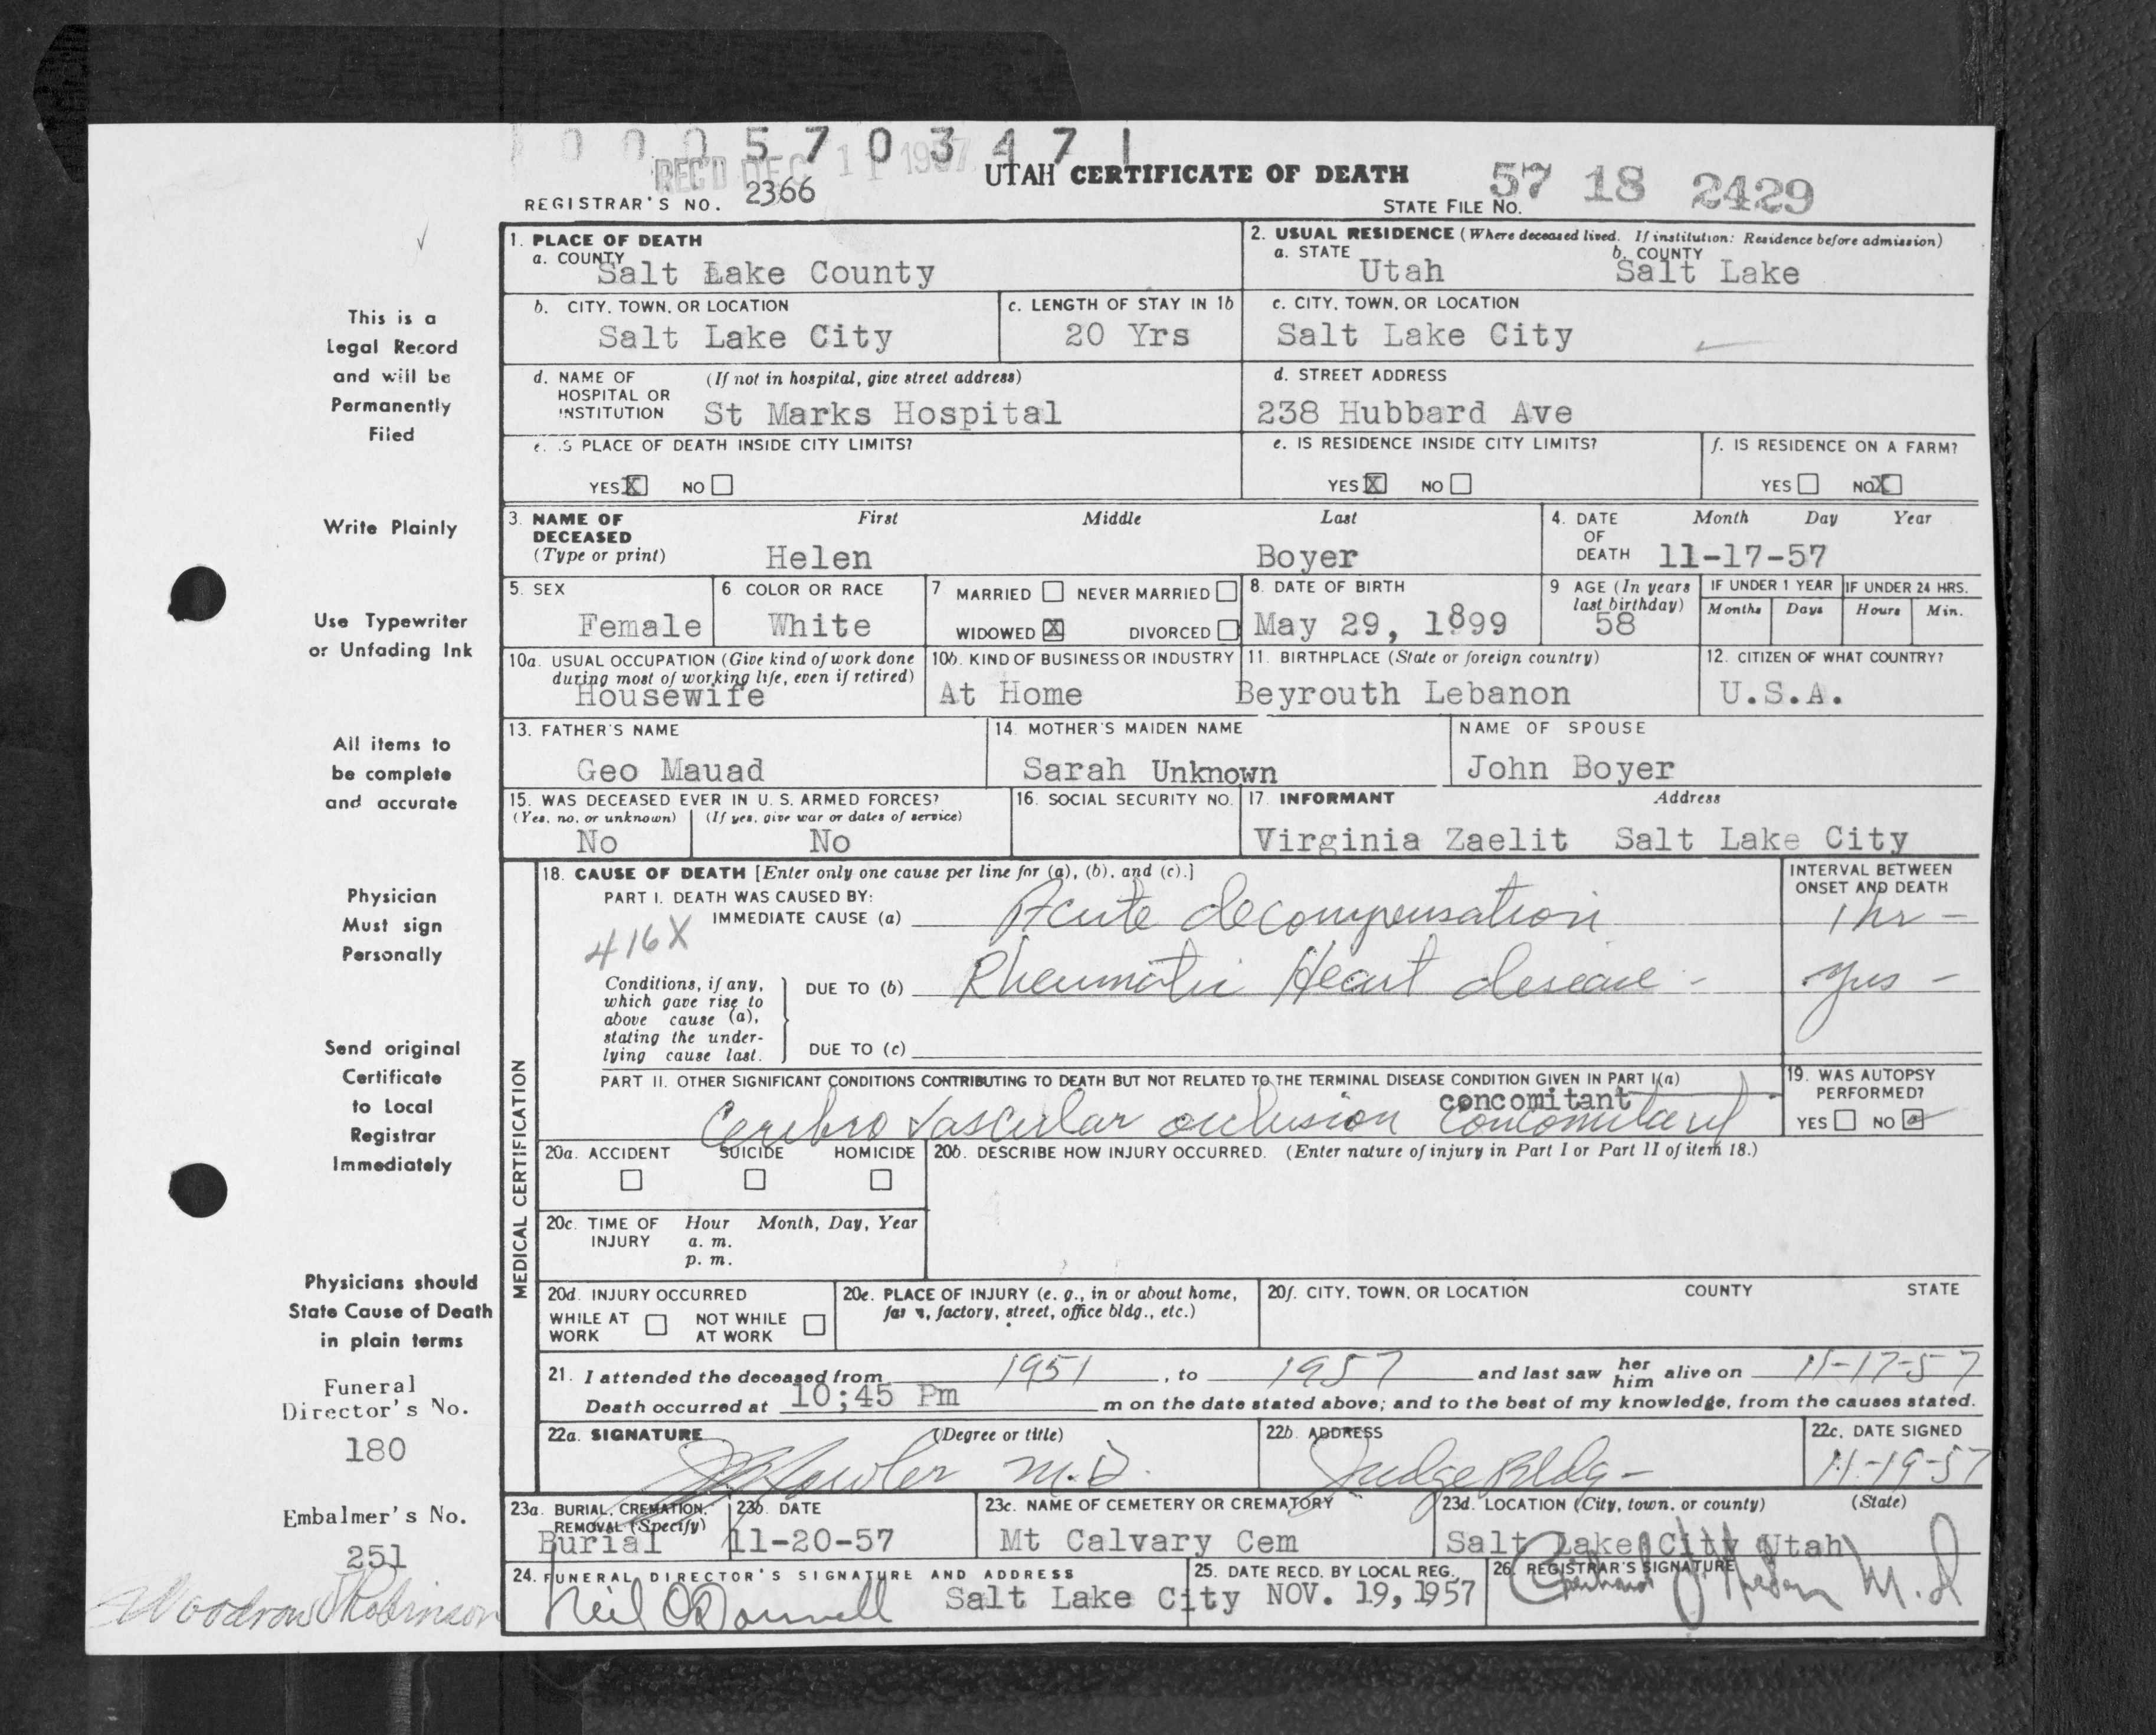 0 0 0 5 7 0 3 4 7 1
REC'D DEC 11 1957
UTAH CERTIFICATE OF DEATH
REGISTRAR'S NO. 2366
STATE FILE NO. 57 18 2429
1. PLACE OF DEATH
a. COUNTY Salt Lake County
2. USUAL RESIDENCE (Where deceased lived. If institution: Residence before admission)
a. STATE Utah b. COUNTY Salt Lake
b. CITY, TOWN, OR LOCATION Salt Lake City
c. LENGTH OF STAY IN 1b 20 Yrs
c. CITY, TOWN, OR LOCATION Salt Lake City
d. NAME OF HOSPITAL OR INSTITUTION (If not in hospital, give street address) St Marks Hospital
d. STREET ADDRESS 238 Hubbard Ave
e. IS PLACE OF DEATH INSIDE CITY LIMITS?
YES X NO
e. IS RESIDENCE INSIDE CITY LIMITS?
YES X NO
f. IS RESIDENCE ON A FARM?
YES NO X
3. NAME OF DECEASED (Type or print)
First Middle Last
Helen Boyer
4. DATE OF DEATH Month Day Year
11-17-57
5. SEX Female
6 COLOR OR RACE White
7 MARRIED NEVER MARRIED
WIDOWED X DIVORCED
8. DATE OF BIRTH May 29, 1899
9 AGE (In years last birthday) 58
IF UNDER 1 YEAR Months Days
IF UNDER 24 HRS. Hours Min.
10a. USUAL OCCUPATION (Give kind of work done during most of working life, even if retired) Housewife
10b. KIND OF BUSINESS OR INDUSTRY At Home
11. BIRTHPLACE (State or foreign country) Beyrouth Lebanon
12. CITIZEN OF WHAT COUNTRY? U.S.A.
13. FATHER'S NAME Geo Mauad
14. MOTHER'S MAIDEN NAME Sarah Unknown
NAME OF SPOUSE John Boyer
15. WAS DECEASED EVER IN U. S. ARMED FORCES?
(Yes, no, or unknown) No
(If yes, give war or dates of service) No
16. SOCIAL SECURITY NO.
17. INFORMANT Address
Virginia Zaelit Salt Lake City
MEDICAL CERTIFICATION
18. CAUSE OF DEATH [Enter only one cause per line for (a), (b), and (c).]
INTERVAL BETWEEN ONSET AND DEATH
PART I. DEATH WAS CAUSED BY:
IMMEDIATE CAUSE (a) Acute decompensation 1 hr -
416X
Conditions, if any, which gave rise to above cause (a), stating the underlying cause last.
DUE TO (b) Rheumatic Heart disease - yrs -
DUE TO (c)
PART II. OTHER SIGNIFICANT CONDITIONS CONTRIBUTING TO DEATH BUT NOT RELATED TO THE TERMINAL DISEASE CONDITION GIVEN IN PART I(a)
concomitant
Cerebro vascular occlusion concomitant
19. WAS AUTOPSY PERFORMED?
YES NO
20a. ACCIDENT SUICIDE HOMICIDE
20b. DESCRIBE HOW INJURY OCCURRED. (Enter nature of injury in Part I or Part II of item 18.)
20c. TIME OF INJURY Hour Month, Day, Year
a. m.
p. m.
20d. INJURY OCCURRED
WHILE AT WORK NOT WHILE AT WORK
20e. PLACE OF INJURY (e. g., in or about home, farm, factory, street, office bldg., etc.)
20f. CITY, TOWN, OR LOCATION COUNTY STATE
21. I attended the deceased from 1951, to 1957 and last saw her him alive on 11-17-57
Death occurred at 10;45 Pm m on the date stated above; and to the best of my knowledge, from the causes stated.
22a. SIGNATURE (Degree or title)
Fowler M.D.
22b. ADDRESS Judge Bldg-
22c. DATE SIGNED 11-19-57
23a. BURIAL, CREMATION, REMOVAL (Specify) Burial
23b. DATE 11-20-57
23c. NAME OF CEMETERY OR CREMATORY Mt Calvary Cem
23d. LOCATION (City, town, or county) (State)
Salt Lake City Utah
24. FUNERAL DIRECTOR'S SIGNATURE AND ADDRESS
Neil O'Donnell Salt Lake City
25. DATE RECD. BY LOCAL REG. NOV. 19, 1957
26. REGISTRAR'S SIGNATURE
M.D
This is a
Legal Record
and will be
Permanently
Filed
Write Plainly
Use Typewriter
or Unfading Ink
All items to
be complete
and accurate
Physician
Must sign
Personally
Send original
Certificate
to Local
Registrar
Immediately
Physicians should
State Cause of Death
in plain terms
Funeral
Director's No.
180
Embalmer's No.
251
Woodrow Robinson